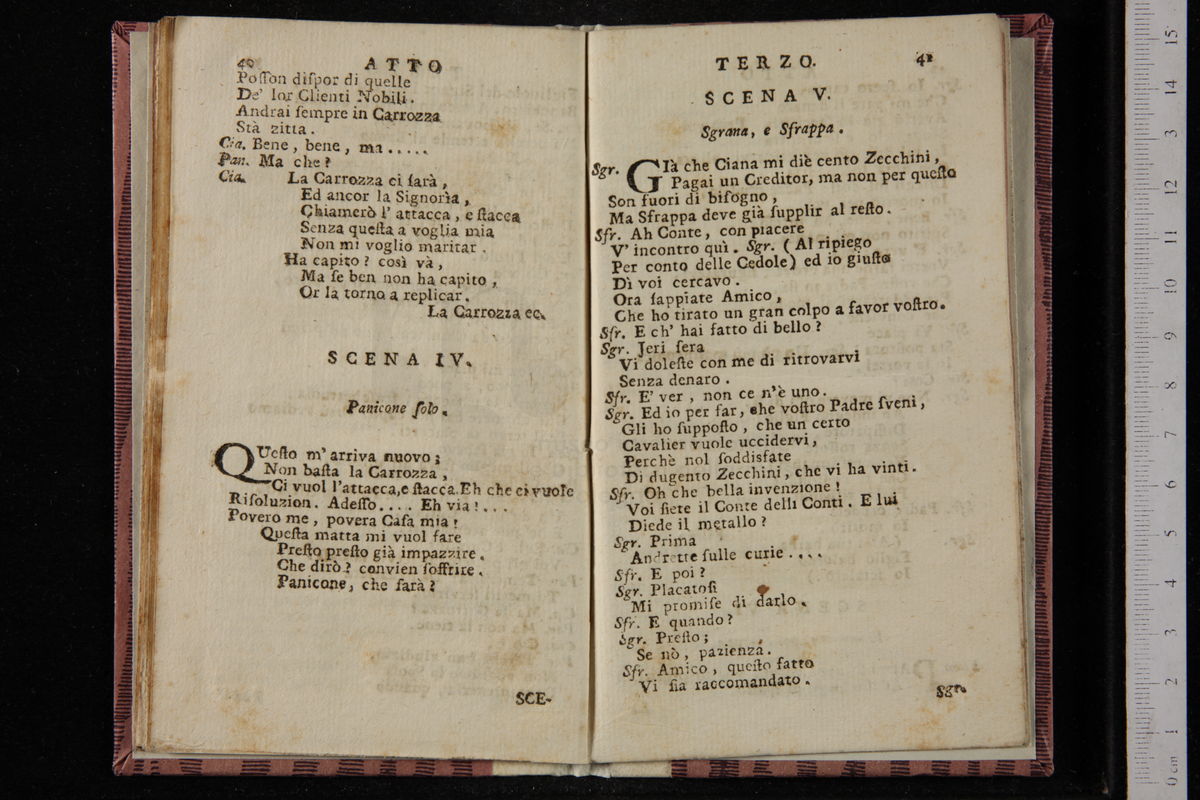 40 ATTO
Posson dispor di quelle
De' lor Clienti Nobili.
Andrai sempre in Carrozza
Stà zitta.
Cia. Bene, bene, ma .....
Pan. Ma che?
Cia. La Carrozza ci sarà,
Ed ancor la Signorìa,
Chiamerò l'attacca, e stacca
Senza questa a voglia mia
Non mi voglio maritar.
Ha capito? così và,
Ma se ben non ha capito,
Or la torno a replicar.
La Carrozza ec.
SCENA IV.
Panicone solo.
QUesto m'arriva nuovo;
Non basta la Carrozza,
Ci vuol l'attacca, e stacca. Eh che ci vuole
Risoluzion. Adesso.... Eh via!...
Povero me, povera Casa mia!
Questa matta mi vuol fare
Presto presto già impazzire.
Che dirò? convien soffrire.
Panicone, che sarà?
SCE-
TERZO. 41
SCENA V.
Sgrana, e Sfrappa.
Sgr. GIà che Ciana mi diè cento Zecchini,
Pagai un Creditor, ma non per questo
Son fuori di bisogno,
Ma Sfrappa deve già supplir al resto.
Sfr. Ah Conte, con piacere
V' incontro quì. Sgr. (Al ripiego
Per conto delle Cedole) ed io giusto
Dì voi cercavo.
Ora sappiate Amico,
Che ho tirato un gran colpo a favor vostro.
Sfr. E ch' hai fatto di bello?
Sgr. Jeri sera
Vi doleste con me di ritrovarvi
Senza denaro.
Sfr. E' ver, non ce n'è uno.
Sgr. Ed io per far, che vostro Padre sveni,
Gli ho supposto, che un certo
Cavalier vuole uccidervi,
Perchè nol soddisfate
Di dugento Zecchini, che vi ha vinti.
Sfr. Oh che bella invenzione!
Voi siete il Conte delli Conti. E lui
Diede il metallo?
Sgr. Prima
Andrette sulle curie ....
Sfr. E poi?
Sgr. Placatosi
Mi promise di darlo.
Sfr. E quando?
Sgr. Presto;
Se nò, pazienza.
Sfr. Amico, questo fatto
Vi sia raccomandato.
Sgr.
0 cm 1 2 3 4 5 6 7 8 9 10 11 12 13 14 15